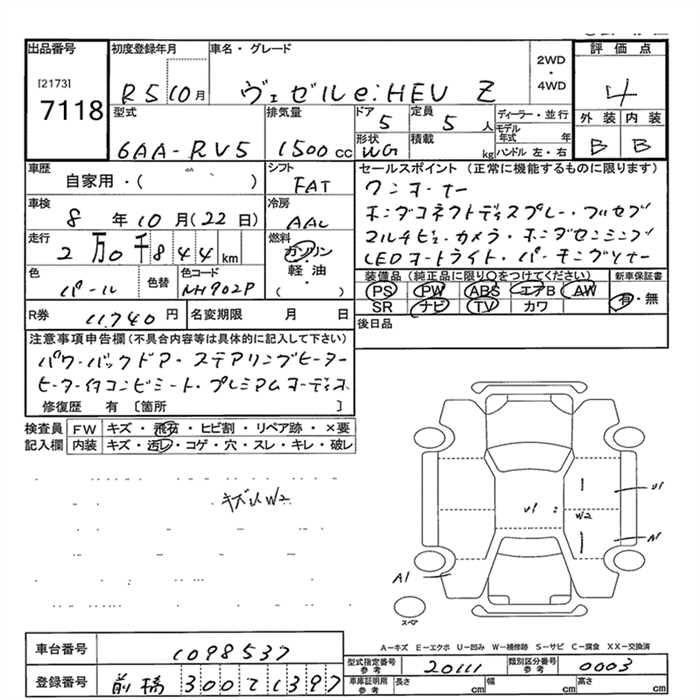 出品番号
[2173]
7118
初度登録年月
R5 10月
車名・グレード
ヴェゼル e:HEV Z
2WD
・
4WD
評価点
4
外装 内装
B B
型式
6AA-RV5
排気量
1500 cc
ドア
5
定員
5 人
形状
WG
積載
kg
ディーラー・並行
モデル年式 年
ハンドル 左・右
車歴
自家用・( )
シフト
FAT
車検
8 年 10 月 (22 日)
冷房
AAC
走行
2 万 0 千 8 4 4 km
燃料
ガソリン
・
軽・油
( )
色
パール
色替
色コード
NH902P
R券 11,740 円
名変期限 月 日
セールスポイント (正常に機能するものに限ります)
ワンオーナー
ホンダコネクトディスプレー・フルセグ
マルチビューカメラ・ホンダセンシング
LEDオートライト・パーキングソナー
装備品 (純正品に限り○をつけてください)
PS PW ABS エアB AW
SR ナビ TV カワ
新車保証書
有・無
後日品
注意事項申告欄 (不具合内容等は具体的に記入して下さい)
パワーバックドア・ステアリングヒーター
ヒーター付コンビシート・プレミアムオーディオ
修復歴 有 [箇所 ]
検査員記入欄
FW キズ・飛石・ヒビ割・リペア跡・×要
内装 キズ・汚レ・コゲ・穴・スレ・キレ・破レ
U1
W2
U1
A1
A1
スペア
A－キズ E－エクボ U－凹み W－補修跡 S－サビ C－腐食 XX－交換済
車台番号 1098537
登録番号 前橋 300 て 1397
型式指定番号 参考 20111
類別区分番号 参考 0003
車庫証明用 参考 長さ cm 幅 cm 高さ cm